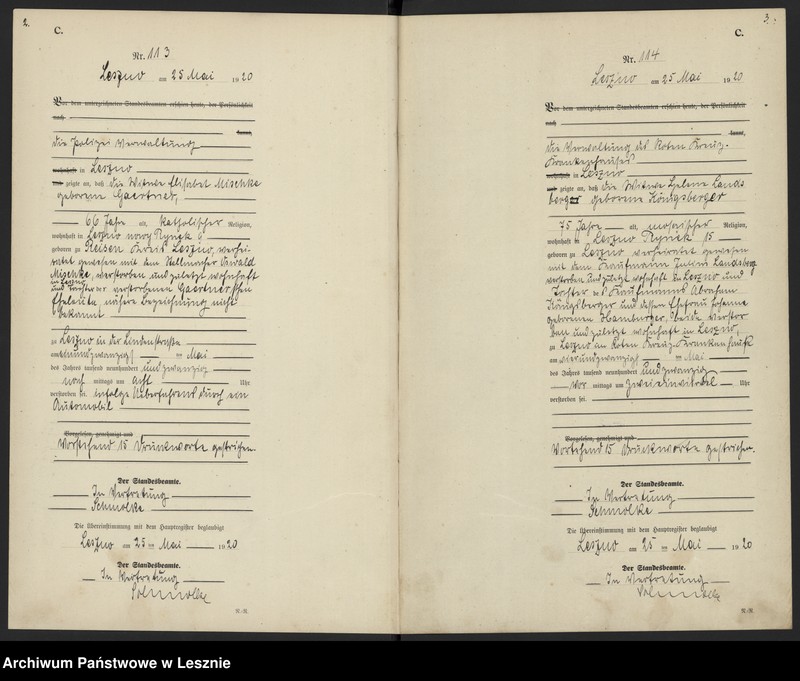 2.
C.
Nr. 113
Leszno am 25 Mai 1920
Vor dem unterzeichneten Standesbeamten erschien heute, der Persönlichkeit
nach
kannt,
die Polizei Verwaltung
wohnhaft in Leszno
und zeigte an, daß die Witwe Elisabet Mischke
geborene Gaertner,
66 Jahre alt, katholischer Religion,
wohnhaft in Leszno nowy Rynek 6
geboren zu Reisen Kreis Leszno, verhei-
ratet gewesen mit dem Stellmacher Oswald
Mischke, verstorben und zuletzt wohnhaft
in Leszno
und Tochter der verstorbenen Gaertner'schen
Eheleute, nähere Bezeichnung nicht
bekannt
zu Leszno in der Lindenstraße
am dreiundzwanzigsten Mai
des Jahres tausend neunhundert und zwanzig
nach mittags um acht Uhr
verstorben sei infolge Ueberfahrens durch ein
Automobil
Vorgelesen, genehmigt und
Vorstehend 15 Druckworte gestrichen.
Der Standesbeamte.
In Vertretung
Schmolke
Die Übereinstimmung mit dem Hauptregister beglaubigt
Leszno am 25 ten Mai 1920
Der Standesbeamte.
In Vertretung
Schmolke
3.
C.
Nr. 114
Leszno am 25 Mai 1920
Vor dem unterzeichneten Standesbeamten erschien heute, der Persönlichkeit
nach
kannt,
die Verwaltung des Roten Kreuz-
Krankenhauses
wohnhaft in Leszno
und zeigte an, daß die Witwe Helene Lands
berger geborene Königsberger
75 Jahre alt, mosaischer Religion,
wohnhaft in Leszno Rynek 15
geboren zu Leszno verheiratet gewesen
mit dem Kaufmann Julius Landsberg
verstorben und zuletzt wohnhaft in Leszno und
Tochter des Kaufmanns Abraham
Königsberger und dessen Ehefrau Johanna
geborenen Hamburger, beide verstor
ben und zuletzt wohnhaft in Leszno,
zu Leszno im Roten Kreuz-Krankenhaus
am vierundzwanzigsten Mai
des Jahres tausend neunhundert und zwanzig
Vor mittags um zweieinviertel Uhr
verstorben sei.
Vorgelesen, genehmigt und
Vorstehend 15 Druckworte gestrichen.
Der Standesbeamte.
In Vertretung
Schmolke
Die Übereinstimmung mit dem Hauptregister beglaubigt
Leszno am 25 ten Mai 1920
Der Standesbeamte.
In Vertretung
Schmolke
Archiwum Państwowe w Lesznie